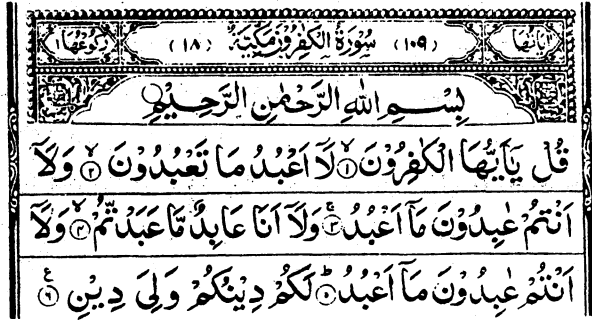 اٰيَاتُهَا ٦ (١٠٩) سُوْرَةُ الْكٰفِرُوْنَ مَكِّيَّةٌ (١٨) رُكُوْعُهَا ١
بِسْمِ اللهِ الرَّحْمٰنِ الرَّحِيْمِ
قُلْ يٰۤاَيُّهَا الْكٰفِرُوْنَ ۙ﴿١﴾ لَاۤ اَعْبُدُ مَا تَعْبُدُوْنَ ۙ﴿٢﴾ وَلَاۤ
اَنْتُمْ عٰبِدُوْنَ مَاۤ اَعْبُدُ ۚ﴿٣﴾ وَلَاۤ اَنَا عَابِدٌ مَّا عَبَدْتُّمْ ۙ﴿٤﴾ وَلَاۤ
اَنْتُمْ عٰبِدُوْنَ مَاۤ اَعْبُدُ ؕ﴿٥﴾ لَكُمْ دِيْنُكُمْ وَلِيَ دِيْنِ ﴿٦﴾ ع